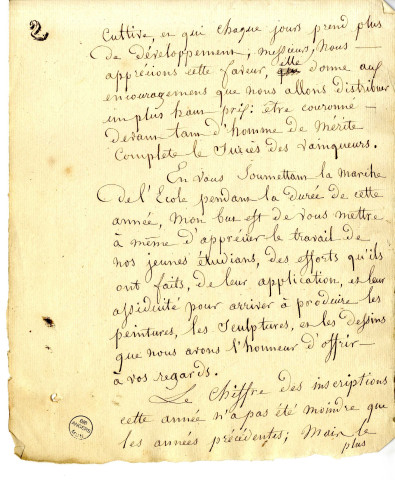 2
cultive, et qui chaque jours prend plus
de développement; messieurs, nous
apprécions cette faveur, elle donne aux
encouragemens que nous allons distribuer
un plus haut prix: etre couronné
devant tant d'homme de mérite
complete le succès des vainqueurs.
En vous soumettant la marche
de l'Ecole pendant la durée de cette
année, mon but est de vous mettre
à même d'apprécier le travail de
nos jeunes étudians, des efforts qu'ils
ont faits, de leur application, et leur
assiduité pour arriver à produire les
peintures, les sculptures, et les dessins
que nous avons l'honneur d'offrir
à vos regards.
Le Chiffre des inscriptions
cette année n'a pas été moindre que
les années précédentes; Mais le
plus